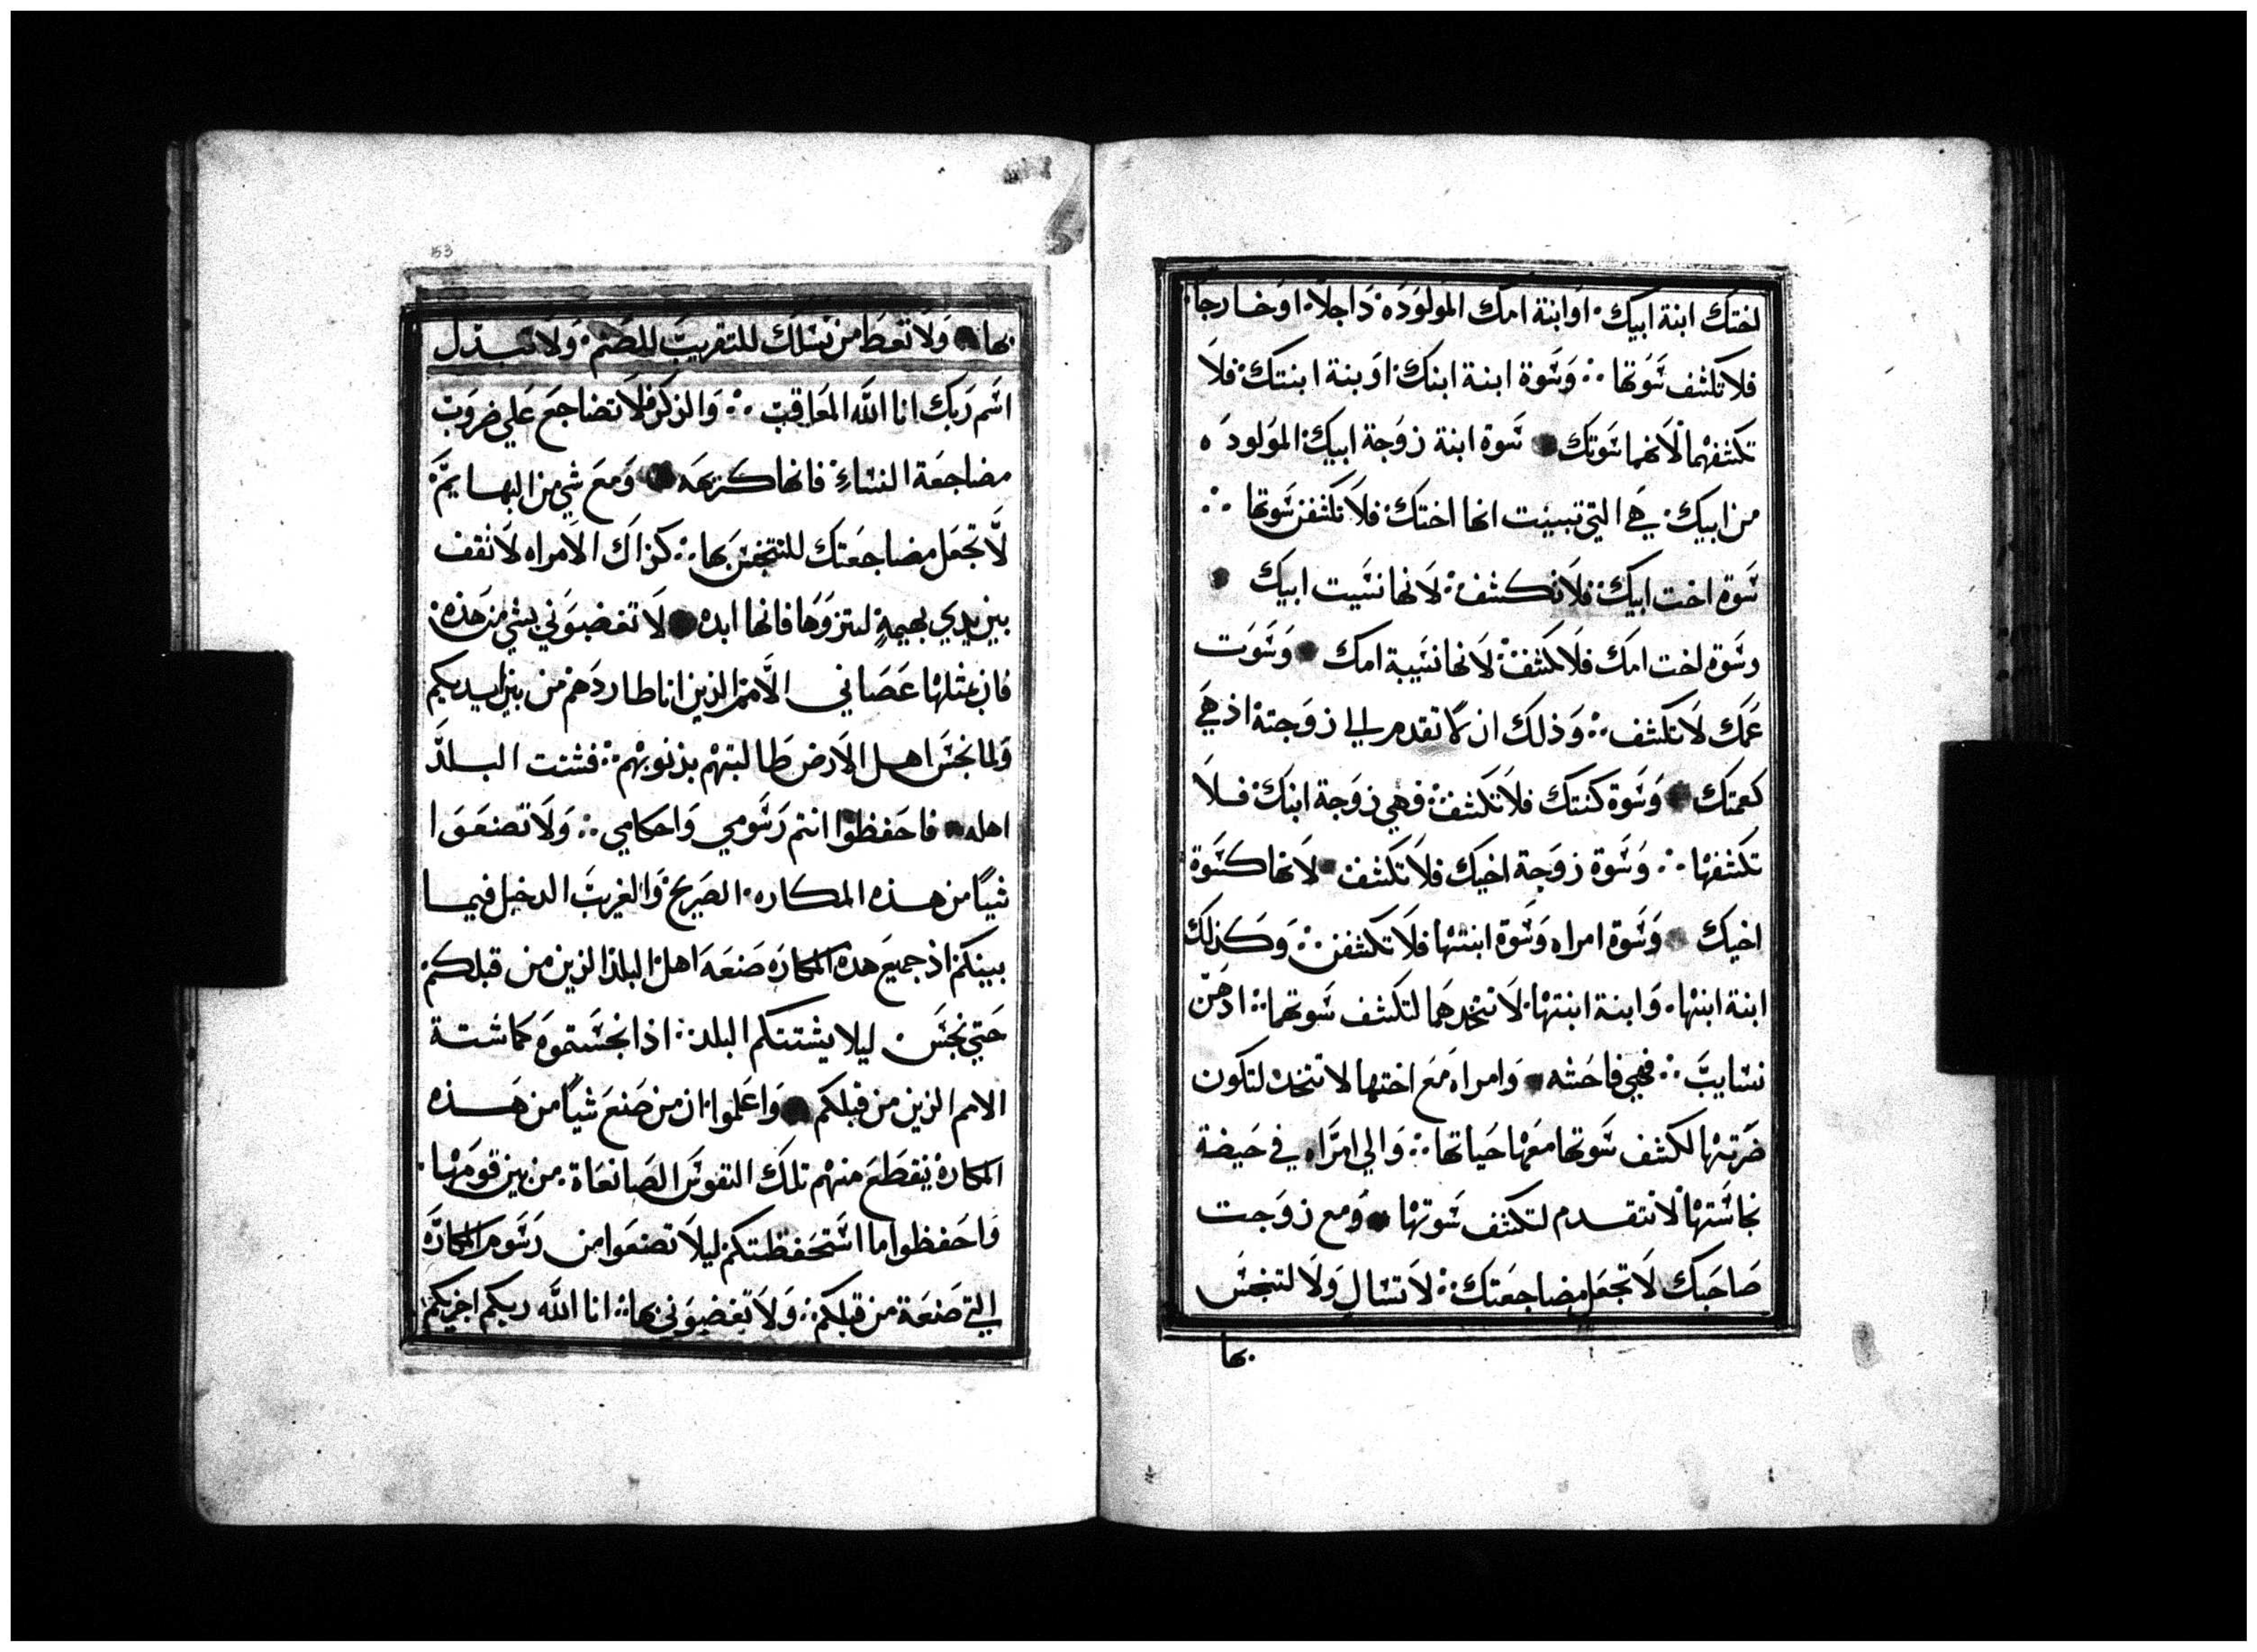 اختك ابنة ابيك اوابنة امك المولوده داجلا اوخارجا
فلا تكشف سوتها وسوة ابنة ابنك اوبنة ابنتك فلا
تكشفهما لانهما سوتك سوة ابنة زوجة ابيك المولوده
من ابيك هي التي تبينت انها اختك فلا تكشفن سوتها
سوة اخت ابيك فلا تكشف لانها نسيت ابيك
وسوة اخت امك فلا تكشف لانها نسيبة امك وسوت
عمك لا تكشف وذلك ان لا تقدم الي زوجتة اذ هي
كعمتك وسوة كنتك فلا تكشف فهي زوجة ابنك فلا
تكشفها وسوة زوجة اخيك فلا تكشف لانها كسوة
اخيك وسوة امراه وسوة ابنتها فلا تكشفن وكذلك
ابنة ابنها وابنة ابنتها لا تتخدهما لتكشف سوتهما اذهن
نسايب فهي فاحشه وامراه مع اختها لا تتخد لتكون
ضرتها لكشف سوتها معها حياتها والي امراه في حيضة
نجاستها لا تتقدم لتكشف سوتها ومع زوجت
صاحبك لا تجعل مضاجعتك لا تسال ولا لتنجس
بها
53
بها ولا تعط من نسلك للتقريب للصنم ولا تبدل
اسم ربك انا الله المعاقب والذكر فلا تضاجع علي ضروب
مضاجعة النساء فانها كريهه ومع شي من البهايم
لا تجعل مضاجعتك للتنجس بها كذاك الامراه لا تقف
بين يدي بهيمة لتنزوها فانها ابده لا تغضبوني بشي من هذه
فان بمثلها عصاني الامم الذين انا طاردهم من بين ايديكم
ولما نجس اهل الارض طالبتهم بذنوبهم فشتت البلد
اهله فاحفظوا انتم رسومي واحكامي ولا تصنعوا
شيا من هذه المكاره الصريح والغريب الدخيل فيما
بينكم اذ جميع هده المكاره صنعه اهل البلد الذين من قبلكم
حتي نجس ليلا يشتتكم البلد اذا نجستموه كما شتت
الامم الذين من قبلكم واعلموا ان من صنع شيا من هذه
المكاره ينقطع منهم تلك النفوس الصانعاة من بين قومها
واحفظوا ما استحفظتكم ليلا تصنعوا من رسوم المكاره
التي صنعة من قبلكم ولا تغضبوني بها انا الله ربكم اجزيكم